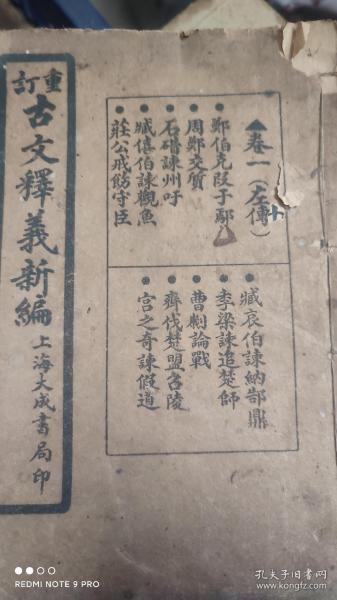 重訂
古文釋義新編
上海大成書局印
▲卷一（左傳）
●鄭伯克段于鄢
●周鄭交質
●石碏諫州吁
●臧僖伯諫觀魚
●莊公戒飭守臣
●臧哀伯諫納郜鼎
●季梁諫追楚師
●曹劌論戰
●齊伐楚盟召陵
●宮之奇諫假道
REDMI NOTE 9 PRO
孔夫子旧书网
www.kongfz.com